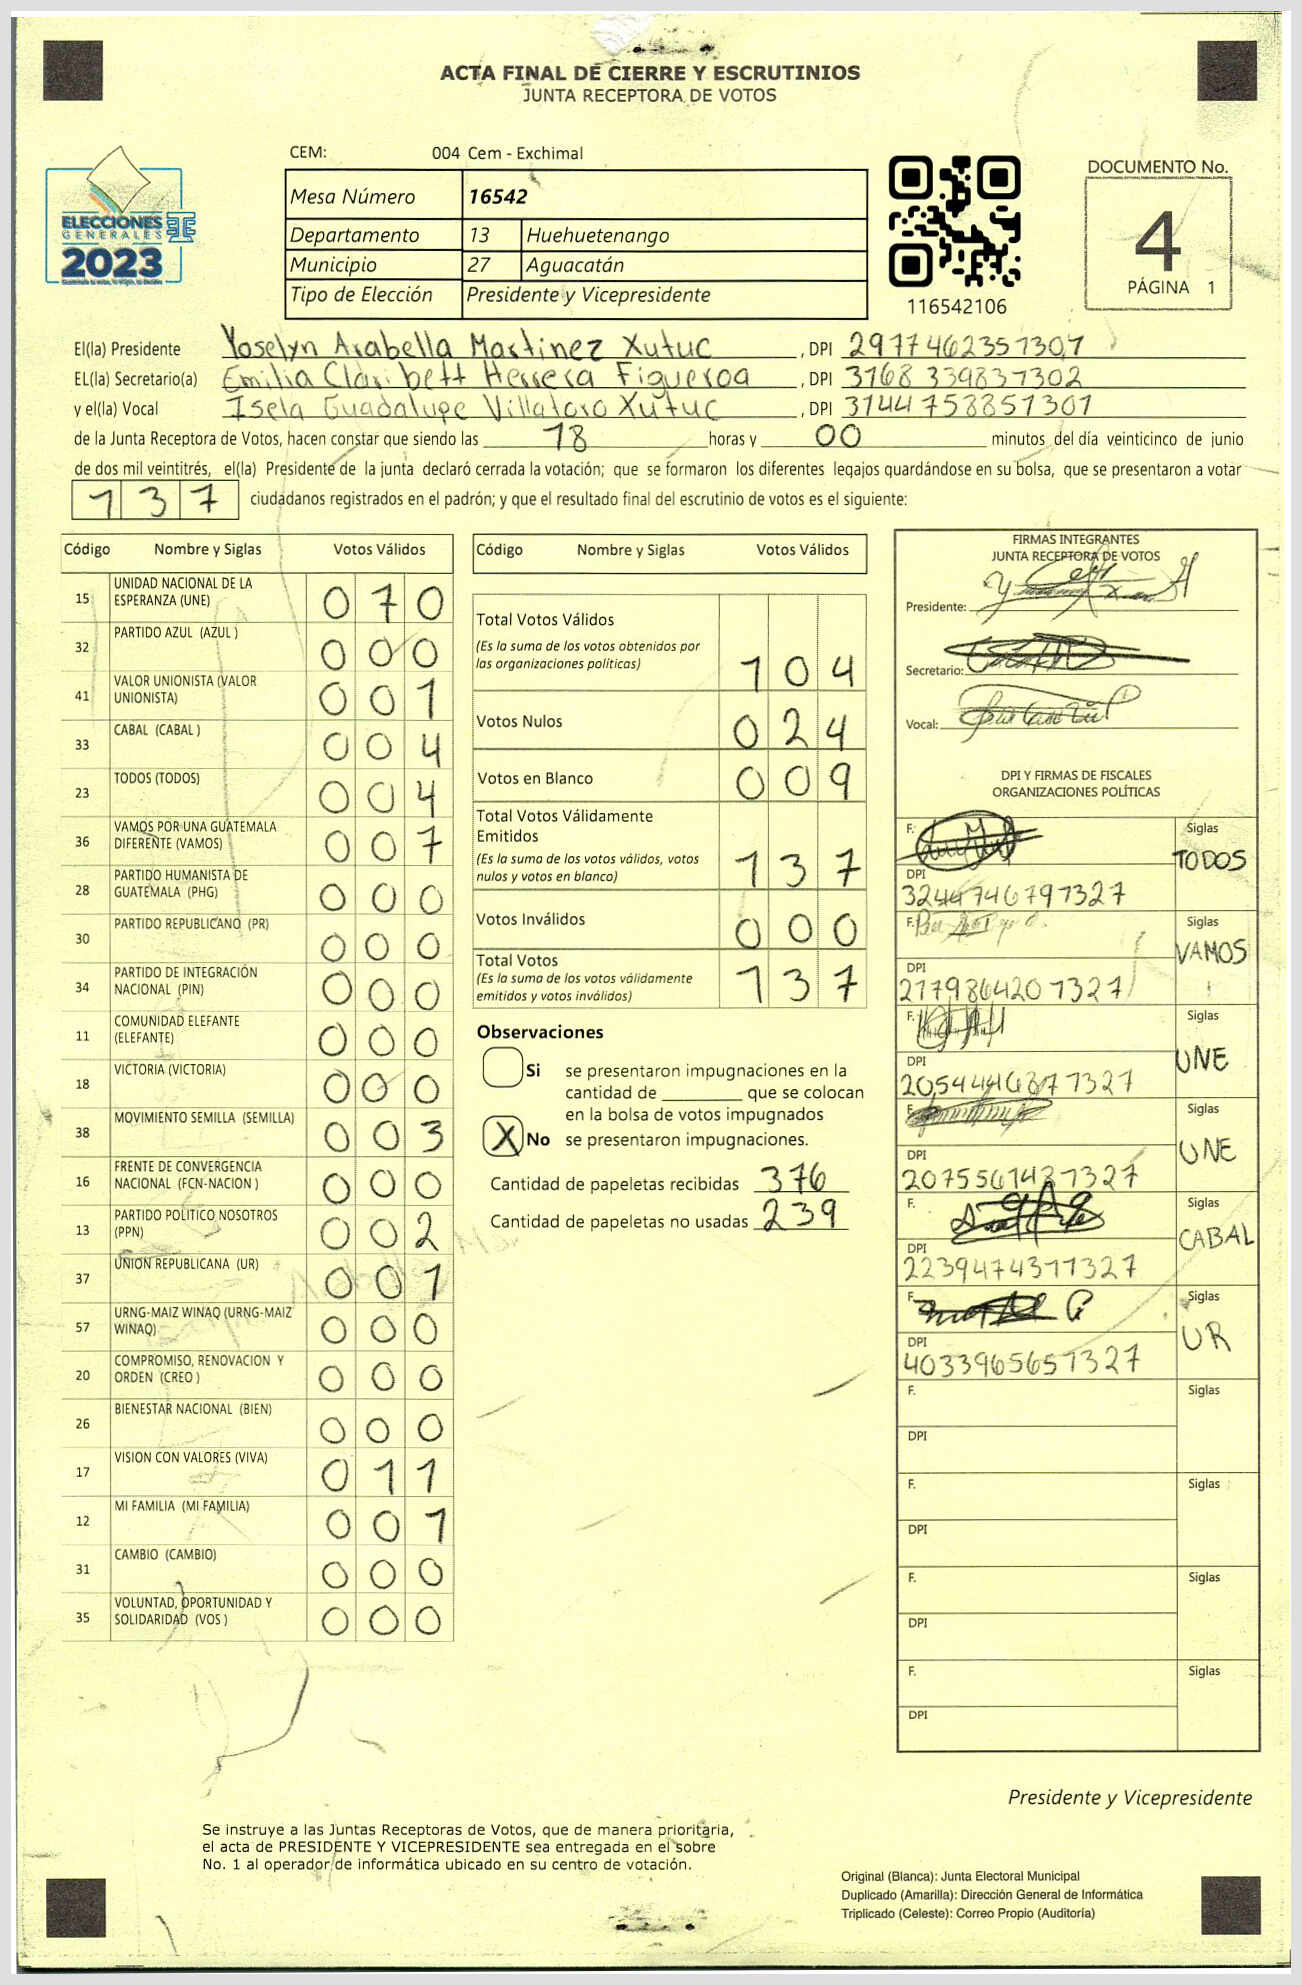 ACTA FINAL DE CIERRE Y ESCRUTINIOS
JUNTA RECEPTORA DE VOTOS
CEM: 004 Cem - Exchimal
ELECCIONES
GENERALES
2023
Mesa Número 16542
Departamento 13 Huehuetenango
Municipio 27 Aguacatán
Tipo de Elección Presidente y Vicepresidente
116542106
DOCUMENTO No.
4
PÁGINA 1
El(la) Presidente Yoselyn Arabella Martinez Xutuc, DPI 2977462351307
EL(la) Secretario(a) Emilia Claribett Herrera Figueroa, DPI 3168339831302
y el(la) Vocal Isela Guadalupe Villatoro Xutuc, DPI 3144758851301
de la Junta Receptora de Votos, hacen constar que siendo las 18 horas y 00 minutos del día veinticinco de junio
de dos mil veintitrés, el(la) Presidente de la junta declaró cerrada la votación; que se formaron los diferentes legajos quardándose en su bolsa, que se presentaron a votar
137 ciudadanos registrados en el padrón; y que el resultado final del escrutinio de votos es el siguiente:
Código Nombre y Siglas Votos Válidos
15 UNIDAD NACIONAL DE LA ESPERANZA (UNE) 070
32 PARTIDO AZUL (AZUL ) 000
41 VALOR UNIONISTA (VALOR UNIONISTA) 001
33 CABAL (CABAL ) 004
23 TODOS (TODOS) 004
36 VAMOS POR UNA GUATEMALA DIFERENTE (VAMOS) 007
28 PARTIDO HUMANISTA DE GUATEMALA (PHG) 000
30 PARTIDO REPUBLICANO (PR) 000
34 PARTIDO DE INTEGRACIÓN NACIONAL (PIN) 000
11 COMUNIDAD ELEFANTE (ELEFANTE) 000
18 VICTORIA (VICTORIA) 000
38 MOVIMIENTO SEMILLA (SEMILLA) 003
16 FRENTE DE CONVERGENCIA NACIONAL (FCN-NACION ) 000
13 PARTIDO POLITICO NOSOTROS (PPN) 002
37 UNION REPUBLICANA (UR) 001
57 URNG-MAIZ WINAQ (URNG-MAIZ WINAQ) 000
20 COMPROMISO, RENOVACION Y ORDEN (CREO ) 000
26 BIENESTAR NACIONAL (BIEN) 000
17 VISION CON VALORES (VIVA) 011
12 MI FAMILIA (MI FAMILIA) 001
31 CAMBIO (CAMBIO) 000
35 VOLUNTAD, OPORTUNIDAD Y SOLIDARIDAD (VOS ) 000
Código Nombre y Siglas Votos Válidos
Total Votos Válidos
(Es la suma de los votos obtenidos por
las organizaciones políticas) 104
Votos Nulos 024
Votos en Blanco 009
Total Votos Válidamente
Emitidos
(Es la suma de los votos válidos, votos
nulos y votos en blanco) 137
Votos Inválidos 000
Total Votos
(Es la suma de los votos válidamente
emitidos y votos inválidos) 137
Observaciones
Si se presentaron impugnaciones en la
cantidad de ________ que se colocan
en la bolsa de votos impugnados
X No se presentaron impugnaciones.
Cantidad de papeletas recibidas 376
Cantidad de papeletas no usadas 239
FIRMAS INTEGRANTES
JUNTA RECEPTORA DE VOTOS
Presidente:
Secretario:
Vocal:
DPI Y FIRMAS DE FISCALES
ORGANIZACIONES POLÍTICAS
F. Siglas TODOS
DPI 3244746791327
F. Siglas VAMOS
DPI 2179864201327
F. Siglas UNE
DPI 2054446871327
F. Siglas UNE
DPI 2075561431327
F. Siglas CABAL
DPI 2239474311327
F. Siglas UR
DPI 4033965651327
F. Siglas
DPI
F. Siglas
DPI
F. Siglas
DPI
F. Siglas
DPI
Presidente y Vicepresidente
Se instruye a las Juntas Receptoras de Votos, que de manera prioritaria,
el acta de PRESIDENTE Y VICEPRESIDENTE sea entregada en el sobre
No. 1 al operador de informática ubicado en su centro de votación.
Original (Blanca): Junta Electoral Municipal
Duplicado (Amarilla): Dirección General de Informática
Triplicado (Celeste): Correo Propio (Auditoría)